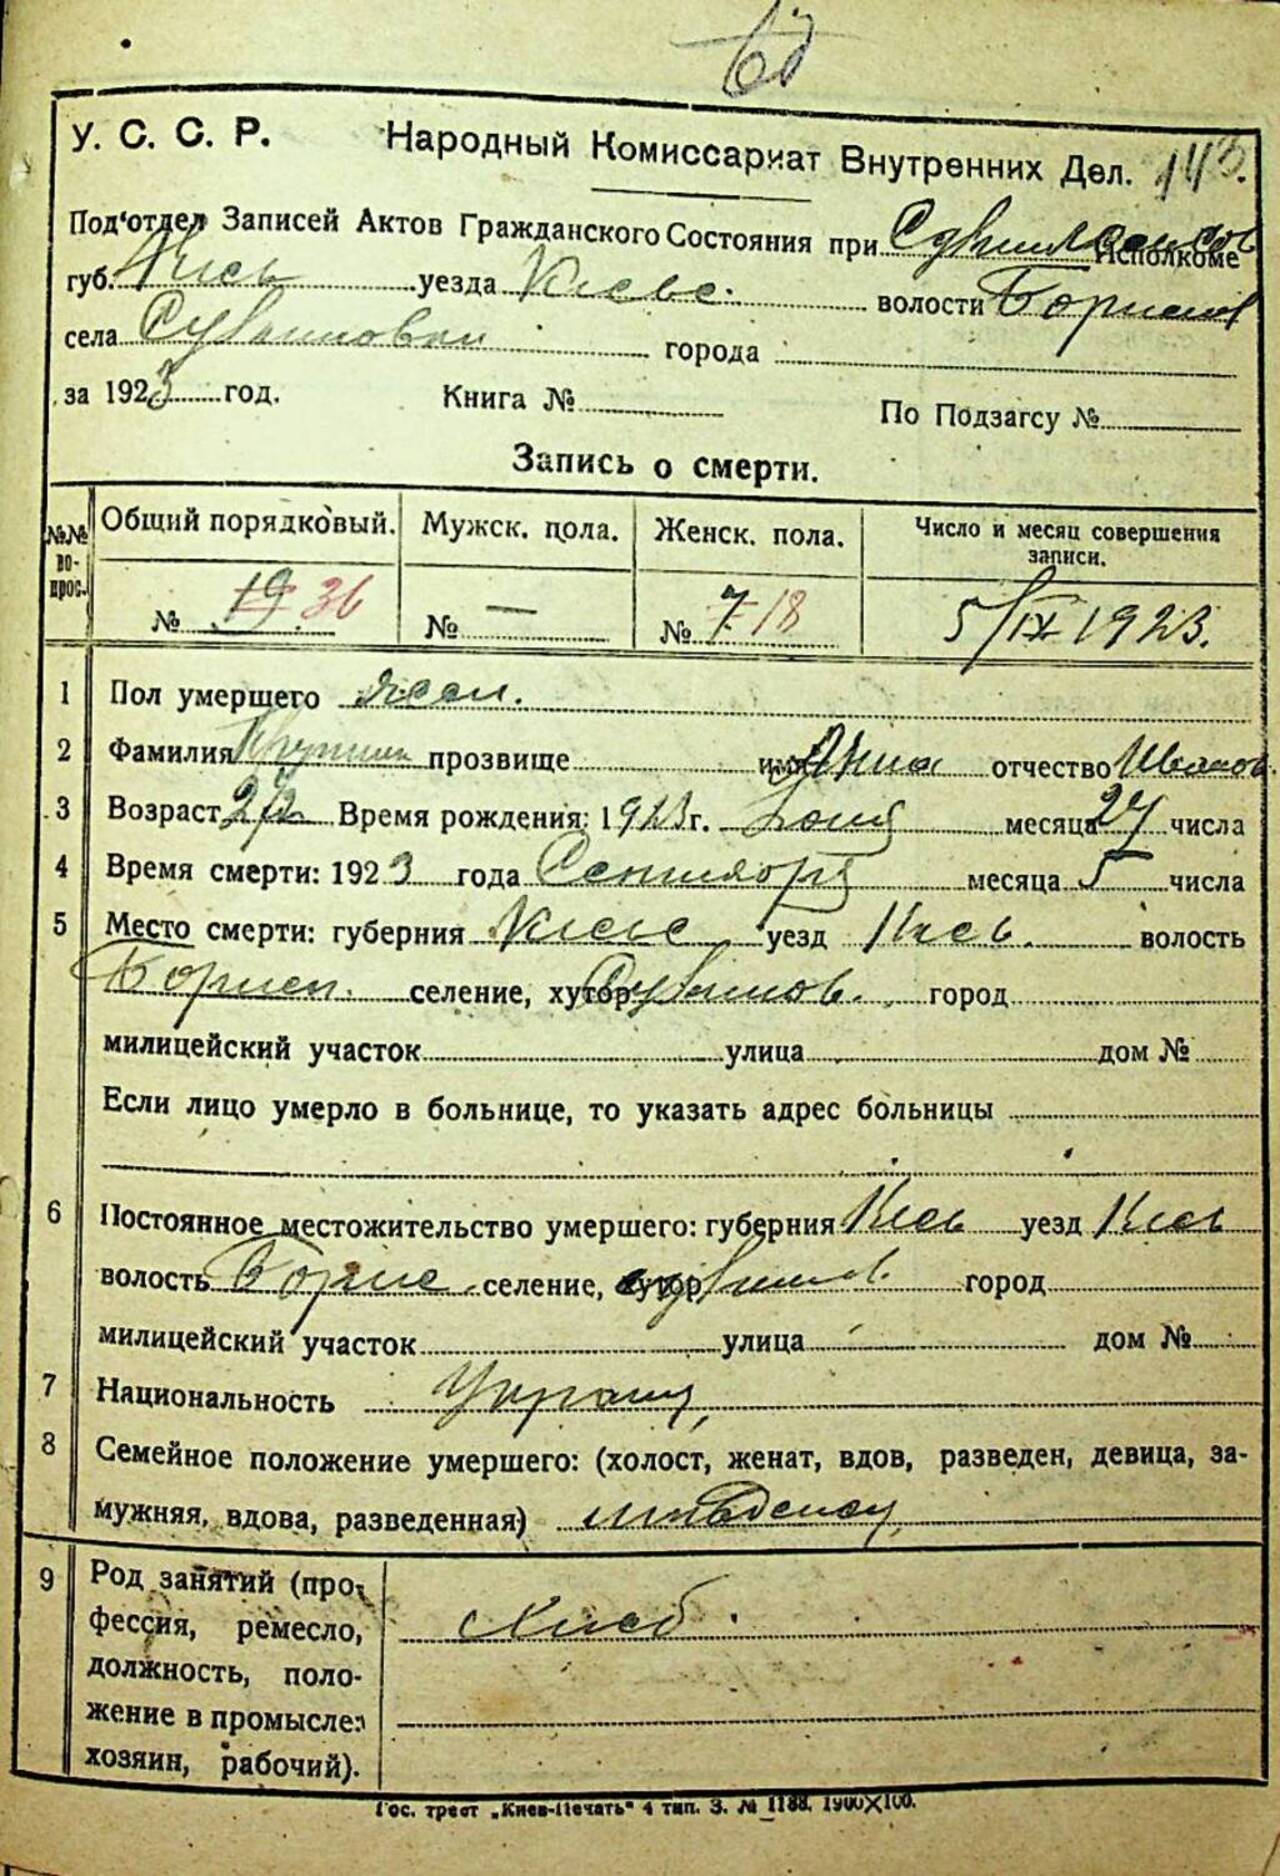 У. С. С. Р. Народный Комиссариат Внутренних Дел. 143.
Под'отдел Записей Актов Гражданского Состояния при Исполкоме
губ. Киев уезда Киевс. волости Борисп
села города
за 1923 год. Книга № По Подзагсу №
Запись о смерти.
№№ вопрос. Общий порядковый. Мужск. пола. Женск. пола. Число и месяц совершения записи.
№ 19 36 № — № 7 18 5/IX 1923.
1 Пол умершего жен.
2 Фамилия прозвище имя Анна отчество Иванов
3 Возраст Время рождения: 1923 г. месяца 27 числа
4 Время смерти: 1923 года Сентября месяца 5 числа
5 Место смерти: губерния Киевс уезд Киев. волость
Борисп. селение, хутор город
милицейский участок улица дом №
Если лицо умерло в больнице, то указать адрес больницы
6 Постоянное местожительство умершего: губерния Киев уезд Киев
волость Борис. селение, хутор город
милицейский участок улица дом №
7 Национальность
8 Семейное положение умершего: (холост, женат, вдов, разведен, девица, за-
мужняя, вдова, разведенная)
9 Род занятий (про-
фессия, ремесло,
должность, поло-
жение в промысле:
хозяин, рабочий).
Гос. трест „Киев-Печать" 4 тип. З. № 1188. 1900×100.